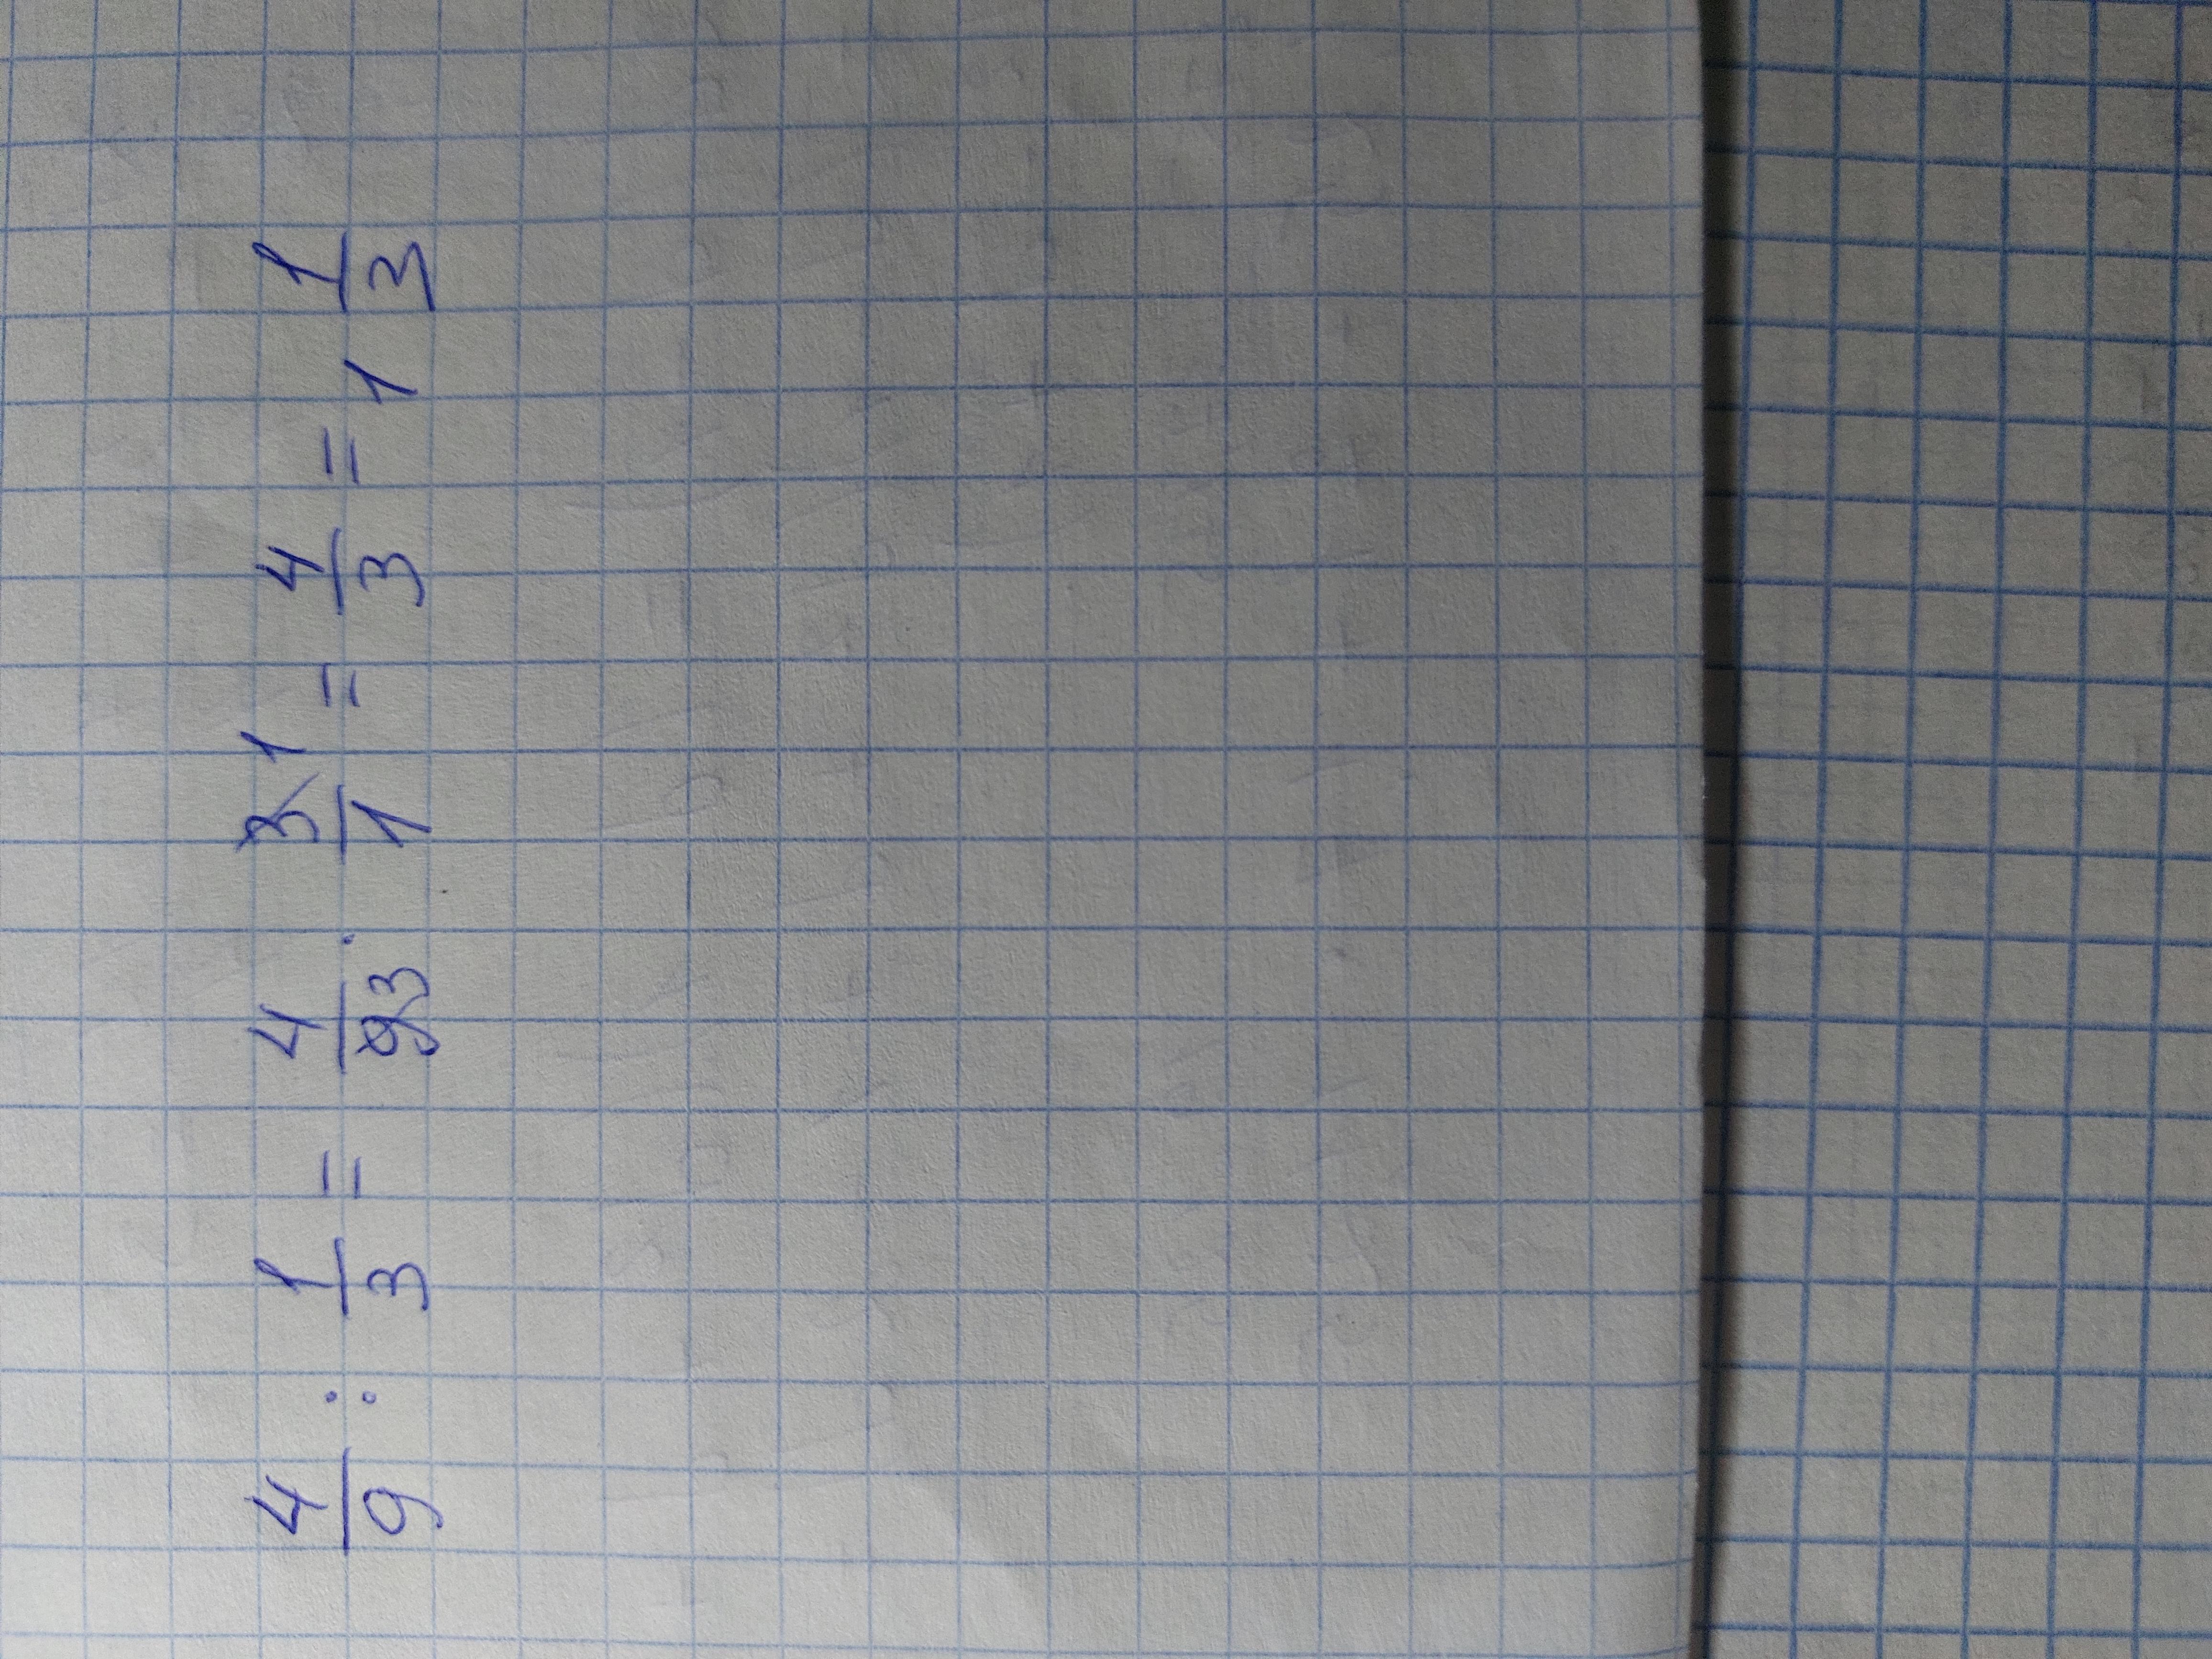 4/9 : 1/3 = 4/9 3 · 3/1 1 = 4/3 = 1 1/3